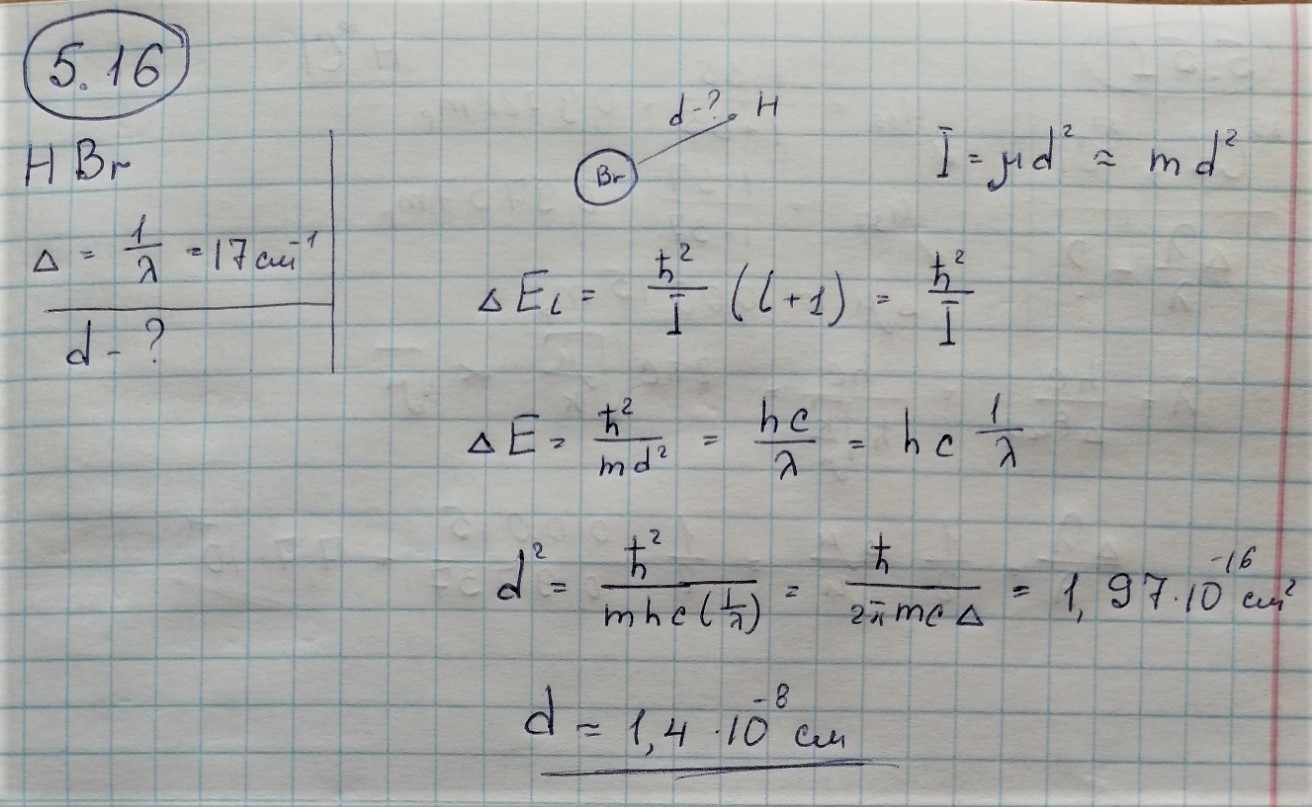 5.16
HBr
Δ = 1/λ = 17 см⁻¹
d - ?
d - ? H
Br
I = μd² ≈ md²
ΔE_l = ħ²/I (l+1) = ħ²/I
ΔE = ħ²/md² = hc/λ = hc 1/λ
d² = ħ²/mhc(1/λ) = ħ/2πmcΔ = 1,97·10⁻¹⁶ см²
d ≈ 1,4·10⁻⁸ см